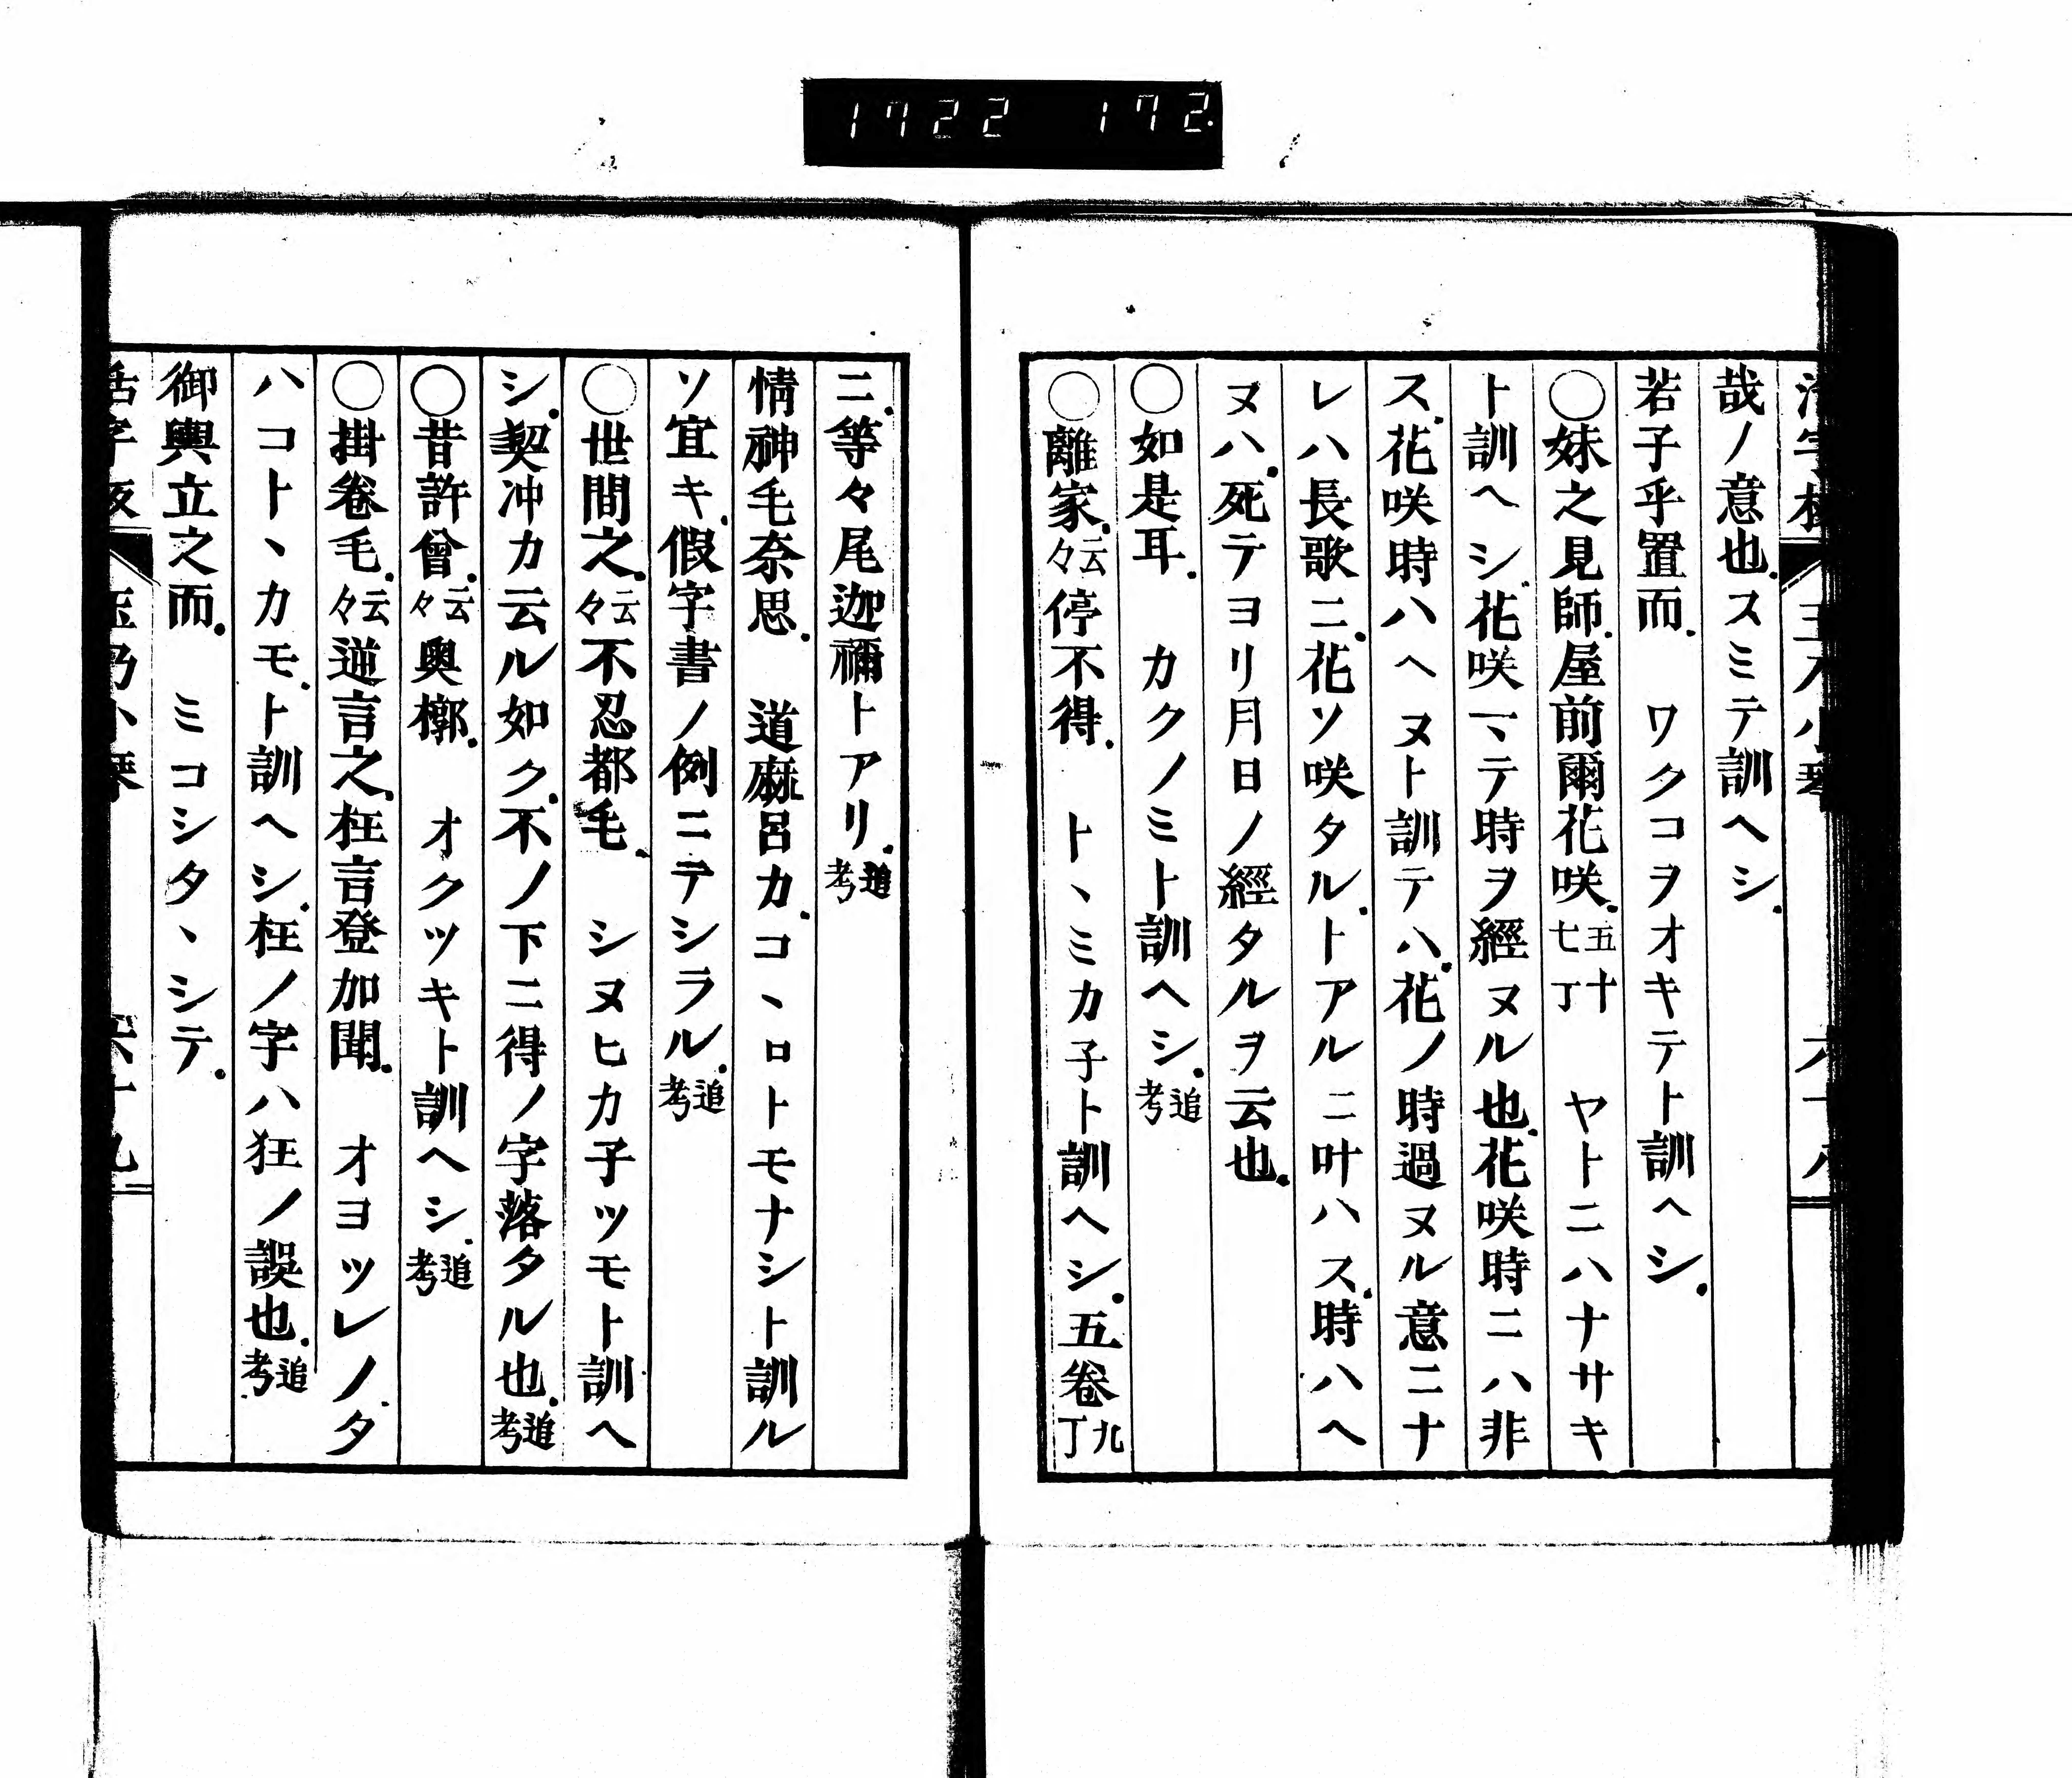 1722 172
哉ノ意也.スミテ訓ヘシ.
若子乎置而.　ワクコヲオキテト訓ヘシ.
○妹之見師.屋前爾花咲.五十七丁　ヤトニハナサキ
ト訓ヘシ.花咲テマテ時ヲ經ヌル也.花咲時ニハ非
ス.花咲時ハヘヌト訓テハ.花ノ時過ヌル意ニナ
レハ長歌ニ.花ソ咲タル.トアルニ叶ハス.時ハヘ
ヌハ.死テヨリ月日ノ經タルヲ云也.
○如是耳.　カクノミト訓ヘシ.追考
○離家.云々停不得.　トヽミカ子ト訓ヘシ.五卷九丁
ニ.等々尾迦禰トアリ.追考
情神毛奈思.　道麻呂カ.コヽロトモナシト訓ル
ソ宜キ.假字書ノ例ニテシラル.追考
○世間之.云々不忍都毛.　シヌヒカ子ツモト訓ヘ
シ.契冲カ云ル如ク.不ノ下ニ得ノ字落タル也.追考
○昔許曾.云々奧槨.　オクツキト訓ヘシ.追考
○掛卷毛.云々逆言之.枉言登加聞.　オヨツレノ.タ
ハコトヽカモ.ト訓ヘシ.枉ノ字ハ狂ノ誤也.追考
御輿立之而.　ミコシタヽシテ.
六十九